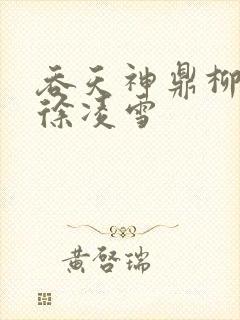 吞天神鼎柳
徐凌雪
黄啓瑞